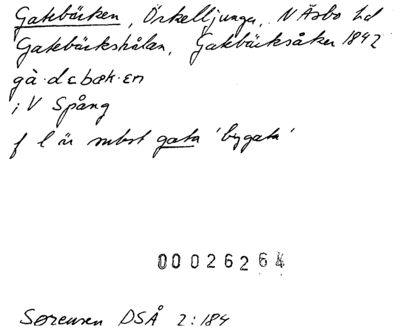 Gatebäcken, Örkelljunga, N Åsbo hd
Gatebäckshålan, Gatebäcksåker 1842
gà·dɛbæk·en
i V Spång
f l är subst gata 'bygata'
00026264
Sørensen DSÅ 2:184